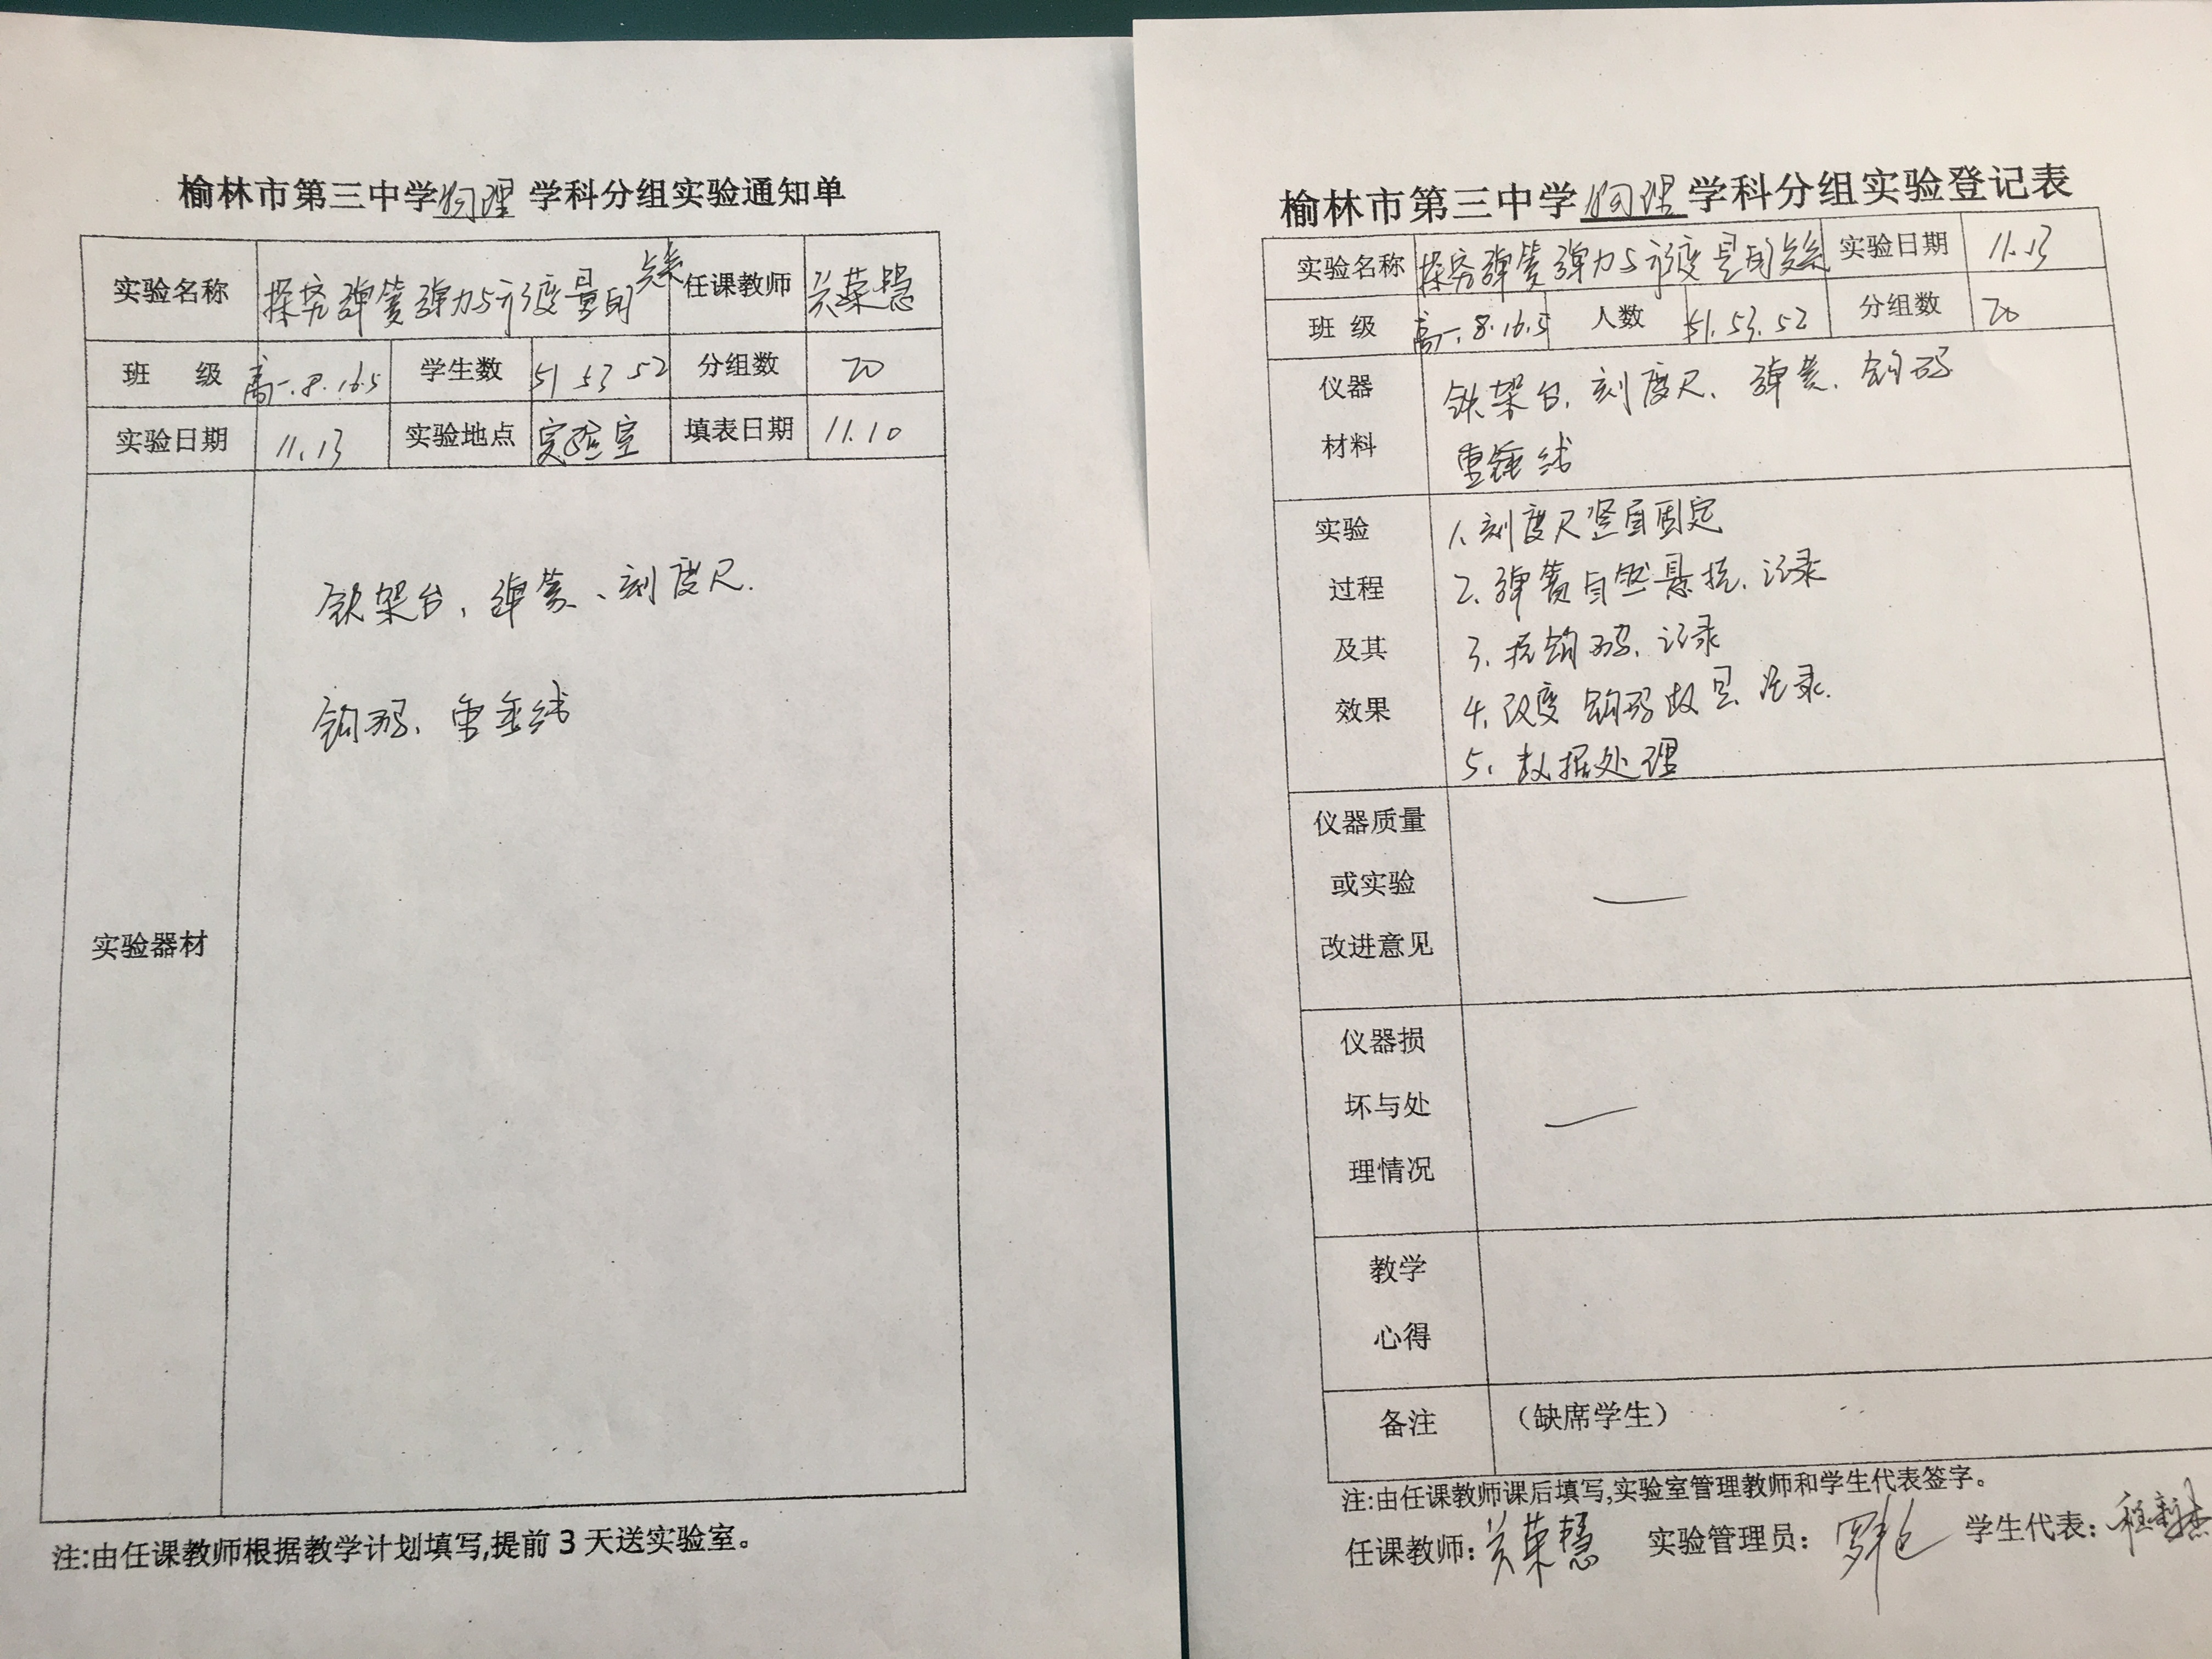 榆林市第三中学物理 学科分组实验通知单
实验名称 探究弹簧弹力与形变量的关系 任课教师 关荣慧
班 级 高一.8.16.5 学生数 51 53 52 分组数 20
实验日期 11.13 实验地点 实验室 填表日期 11.10
铁架台、弹簧、刻度尺.
钩码、重垂线
实验器材
注:由任课教师根据教学计划填写,提前3天送实验室。
榆林市第三中学物理学科分组实验登记表
实验名称 探究弹簧弹力与形变量的关系 实验日期 11.13
班 级 高一.8.16.5 人数 51.53.52 分组数 20
仪器 铁架台、刻度尺、弹簧、钩码
材料 重锤线
实验 1、刻度尺竖直固定
过程 2、弹簧自然悬挂、记录
及其 3、挂钩码、记录
效果 4、改变钩码数量 记录.
5、数据处理
仪器质量
或实验
改进意见
仪器损
坏与处
理情况
教学
心得
备注 （缺席学生）
注:由任课教师课后填写,实验室管理教师和学生代表签字。
任课教师：关荣慧 实验管理员： 学生代表：